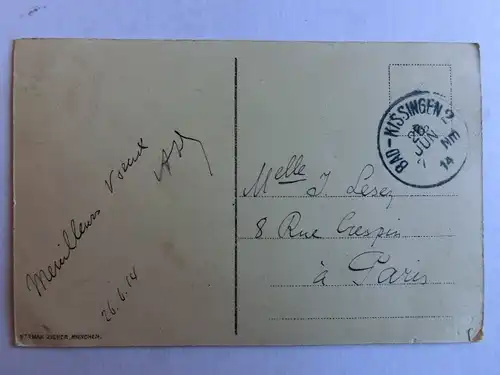 Meilleurs voeux
26.6.14
OTTMAR ZIEHER, MÜNCHEN.
BAD-KISSINGEN 2
26
JUN
7
NM
14
Melle J. Lesez
8 Rue Crespin
à Paris